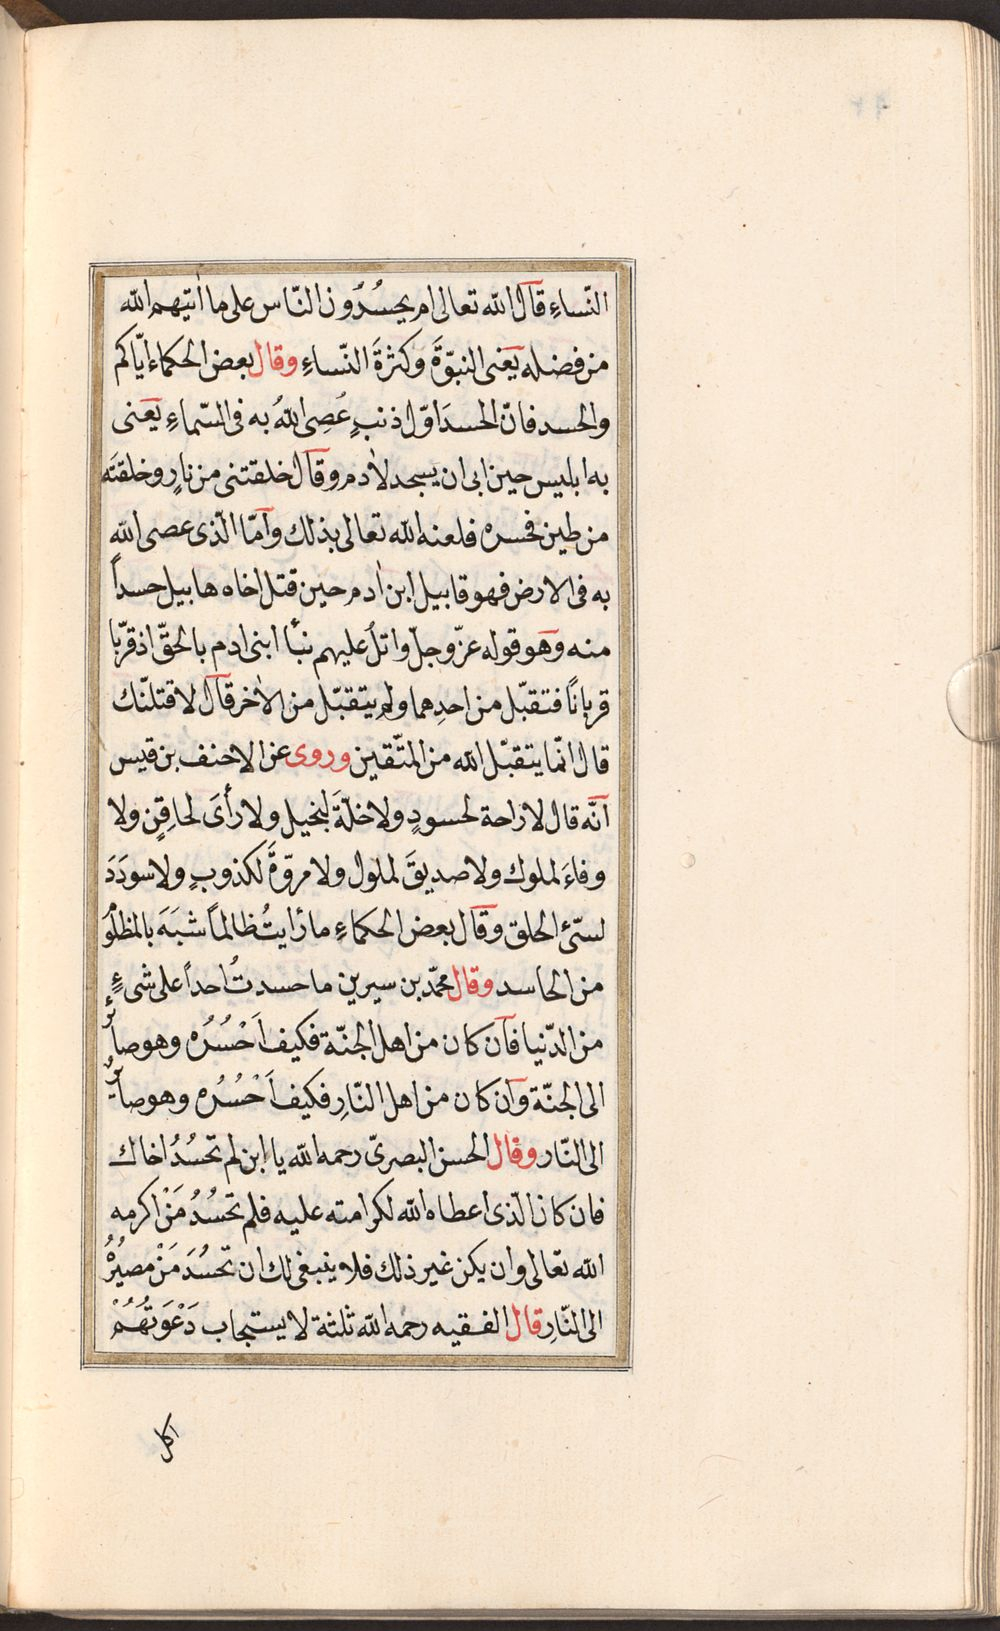 النّساءِ قال الله تعالى ام يحسُدُون النّاس على ما اٰتيهم الله
من فضله يعنى النبوّةَ وكثرةَ النّساءِ وقال بعض الحكماء ايّاكم
والحسد فانّ الحسدَ اوّل ذنبٍ عُصِى اللهُ به فى السّماءِ يعنى
به ابليس حين ابى ان يسجد لاٰدم وقال خلقتنى من نارٍ وخلقتَه
من طين فحسده فلعنه الله تعالى بذلك وامّا الّذى عصى الله
به فى الارض فهو قابيل ابن اٰدم حين قتل اخاه هابيل حسداً
منه وهو قوله عزّ وجلّ واتلُ عليهم نبأ ابنى ادم بالحقّ اذ قرّبا
قرباناً فتقبّل من احدِهما ولم يتقبّل من الاٰخر قال لاقتلنّك
قال انّما يتقبّل الله من المتّقين وروى عن الاحنف بن قيس
انّه قال لا راحة لحسودٍ ولا خلّةَ لبخيل ولا رأىَ لحاقِنٍ ولا
وفاءَ لملوك ولا صديقَ لملول ولا مروّةَ لكذوبٍ ولا سودَدَ
لسيّئ الخلق وقال بعض الحكماءِ ما رايتُ ظالماً شبَهَ بالمظلُو
من الحاسد وقال محمّد بن سيرين ما حسدتُ احداً على شىءٍ
من الدّنيا فان كان من اهل الجنّة فكيف اَحْسُدُه وهو صائرٌ
الى الجنّة وان كان من اهل النّارِ فكيف اَحْسُدُه وهو صائرٌ
الى النّار وقال الحسن البصرىّ رحمه الله يا ابن لم تحسُدُ اخاك
فان كان الّذى اعطاه الله لكرامته عليه فلم تحسُدُ مَنْ اكرمه
الله تعالى وان يكن غير ذلك فلا ينبغى لك ان تحسُدَ مَنْ مصيرُهُ
الى النّارِ قال الفقيه رحمه الله ثلثة لا يستجاب دَعْوَتُهُمْ
اكل